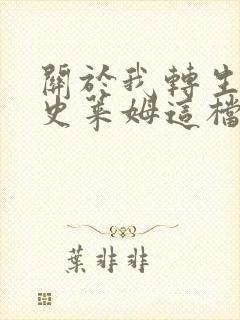 關於我轉生
史萊姆這檔
葉非非